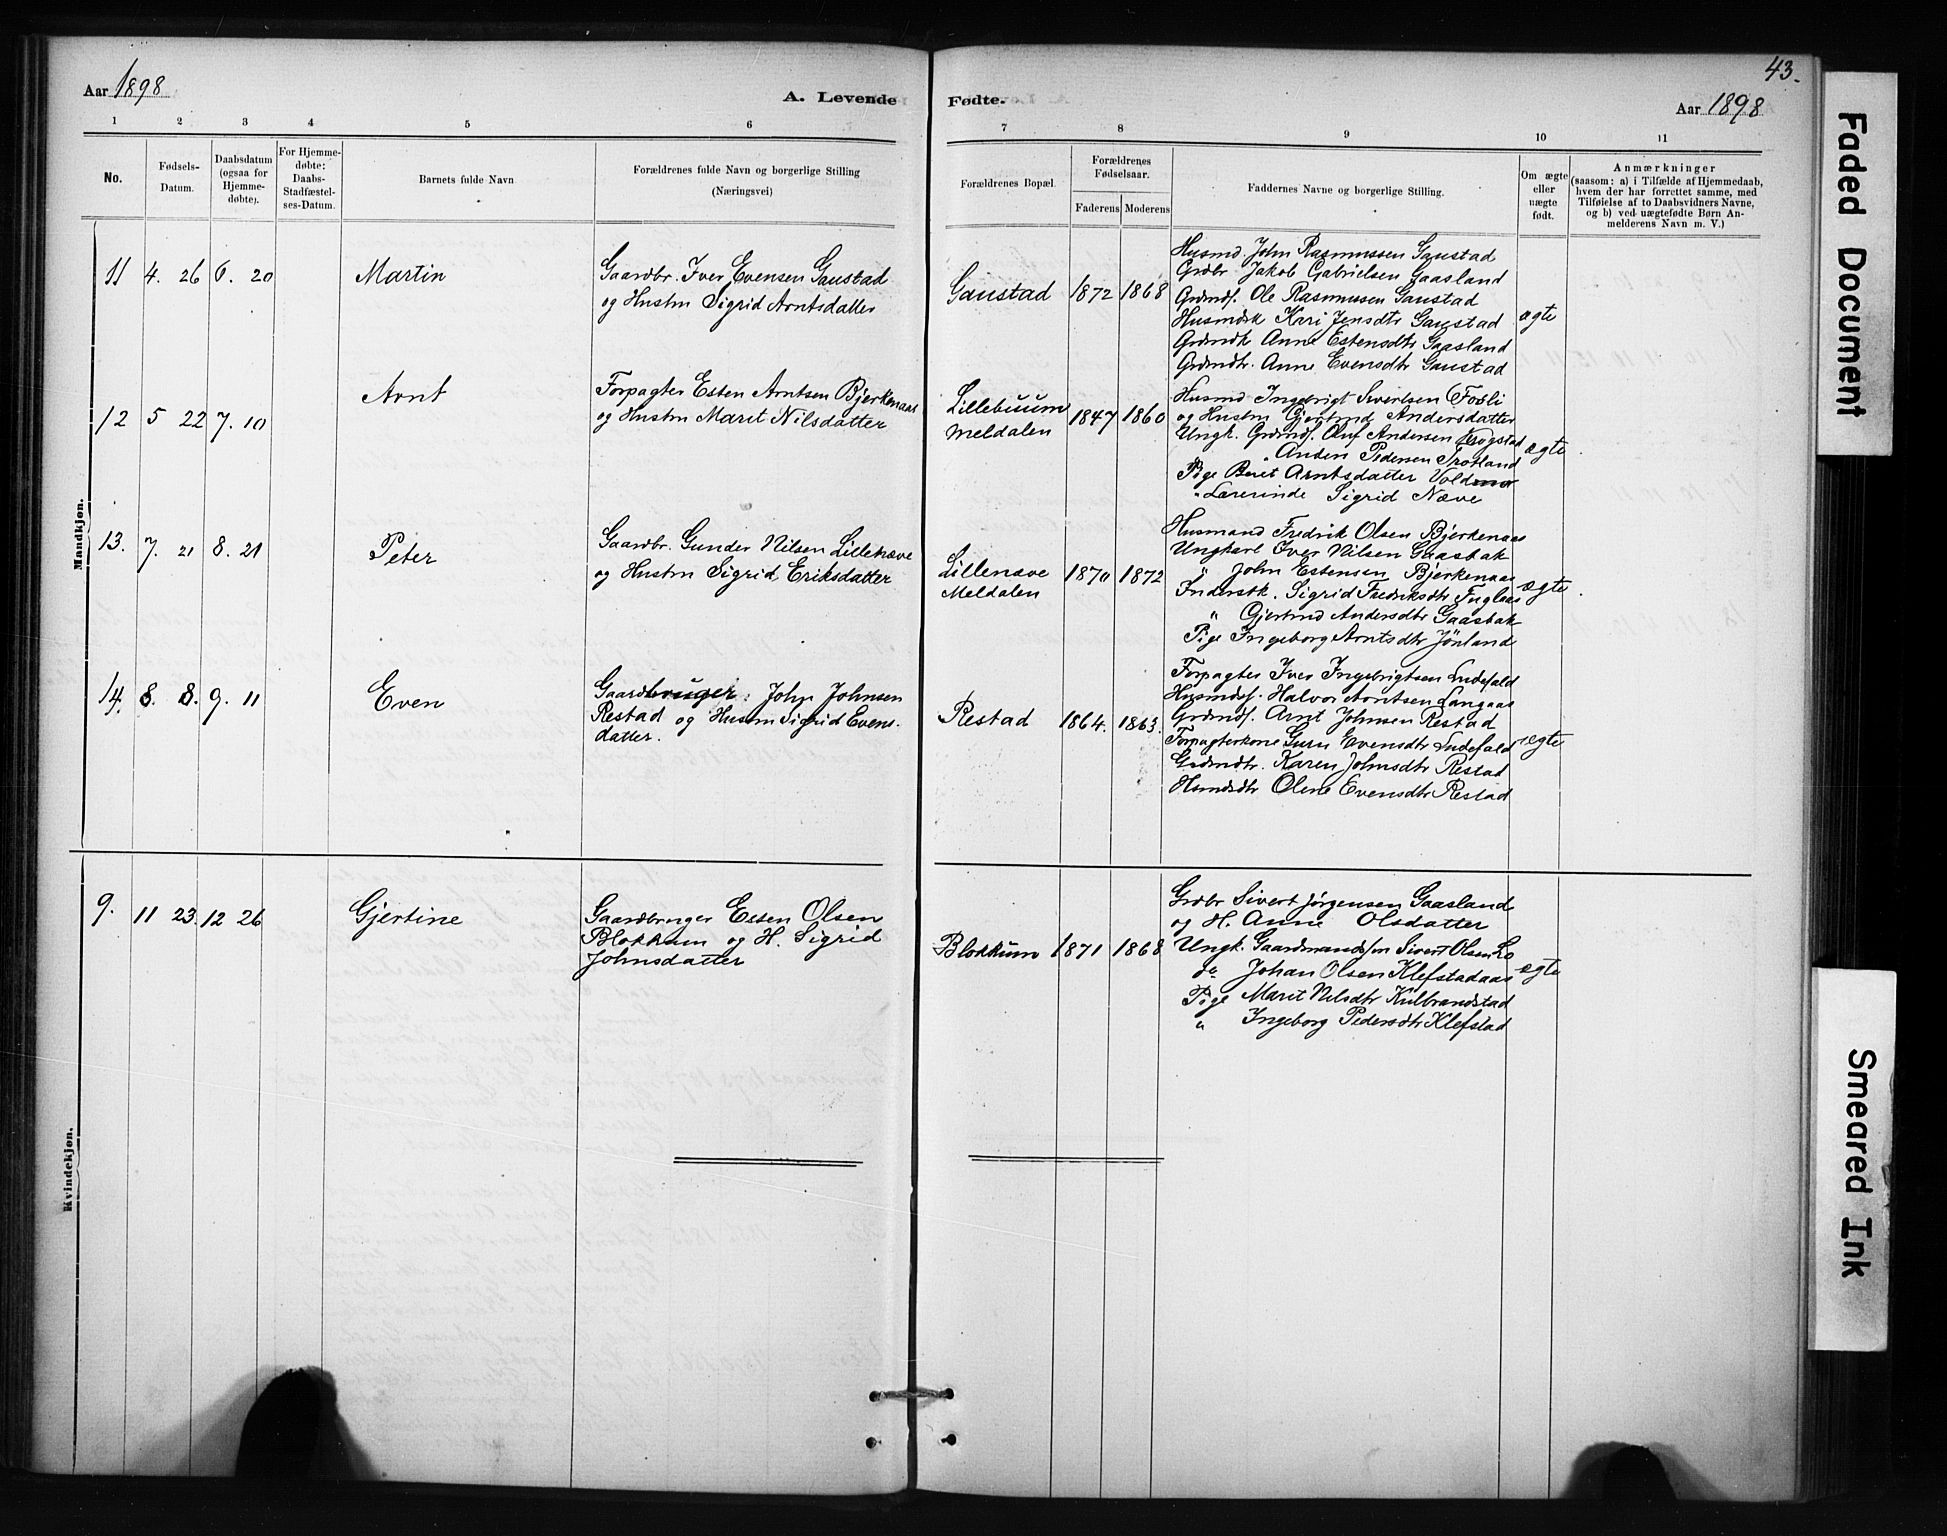 Aar 1898
A. Levende Fødte.
Aar 1898
43.
1 2 3 4 5 6 7 8 9 10 11
No.
Fødsels-Datum.
Daabsdatum (ogsaa for Hjemme-døbte).
For Hjemme-døbte: Daabs-Stadfæstel-ses-Datum.
Barnets fulde Navn
Forældrenes fulde Navn og borgerlige Stilling
(Næringsvei)
Forældrenes Bopæl.
Forældrenes Fødselsaar.
Faderens Moderens
Faddernes Navne og borgerlige Stilling.
Om ægte eller uægte født.
Anmærkninger
(saasom: a) i Tilfælde af Hjemmedaab,
hvem der har forrettet samme, med
Tilføielse af to Daabsvidners Navne,
og b) ved uægtefødte Børn An-
melderens Navn m. V.)
Mandkjøn.
11 4. 26 6. 20 Martin
Gaardbr. Iver Evensen Gaustad
og Hustru Sigrid Arntsdatter
Gaustad 1872 1868
Husmd John Rasmussen Gaustad
Grdbr Jakob Gabrielsen Gaasland
Grdmds. Ole Rasmussen Gaustad
Husmdsk Kari Jensdtr Gaustad
Grdmdk Anne Estensdtr Gaasland
Grdmdtr. Anne Evensdtr Gaustad
ægte
12 5 22 7. 10 Arnt
Forpagter Esten Arntsen Bjerkenaas
og Hustru Marit Nilsdatter
Lillebuum
Meldalen
1847 1860
Husmd Ingebrigt Sivertsen Fosli
og Hustru Gjertrud Andersdatter
Ungk. Grdmds. Oluf Andersen Krogstad
" Anders Pedersen Trotland
Pige Beret Arntsdatter Vold
" Lærerinde Sigrid Næve
ægte
13. 7. 21 8. 21 Peter
Gaardbr. Gunder Nilsen Lillenæve
og Hustru Sigrid Eriksdatter
Lillenæve
Meldalen
1870 1872
Husmand Fredrik Olsen Bjerkenaas
Ungkarl Iver Nilsen Gaasbak
" John Estensen Bjerkenaas
Inderstk. Sigrid Fredriksdtr Fuglaas
" Gjertrud Andersdtr Gaasbak
Pige Ingeborg Arntsdtr Jönland
ægte
14. 8. 8. 9. 11 Even
Gaardbruger. John Johnsen
Restad og Hustru Sigrid Evens-
datter.
Restad 1864. 1863.
Forpagter Iver Ingebrigtsen Indefald
Husmds. Halvor Arntsen Langaas
Grdmds. Arnt Johnsen Restad
Forpagterkone Guru Evensdtr Indefald
Grdmdtr. Karen Johnsdtr Restad
Hsmdsdtr Oline Evensdtr Restad
ægte
Kvindekjøn.
9. 11 23. 12 26 Gjertine
Gaardbruger Esten Olsen
Blokkum og H. Sigrid
Johnsdatter
Blokkum 1871 1868
Grdbr Sivert Jørgensen Gaasland
og H. Anne Olsdatter
Ungk. Gaardmandssøn Sivert Olsen Lo
do Johan Olsen Klefstadaas
Pige Marit Nilsdtr Kulbrandstad
" Ingeborg Pedersdtr Klefstad
ægte
Faded Document
Smeared Ink